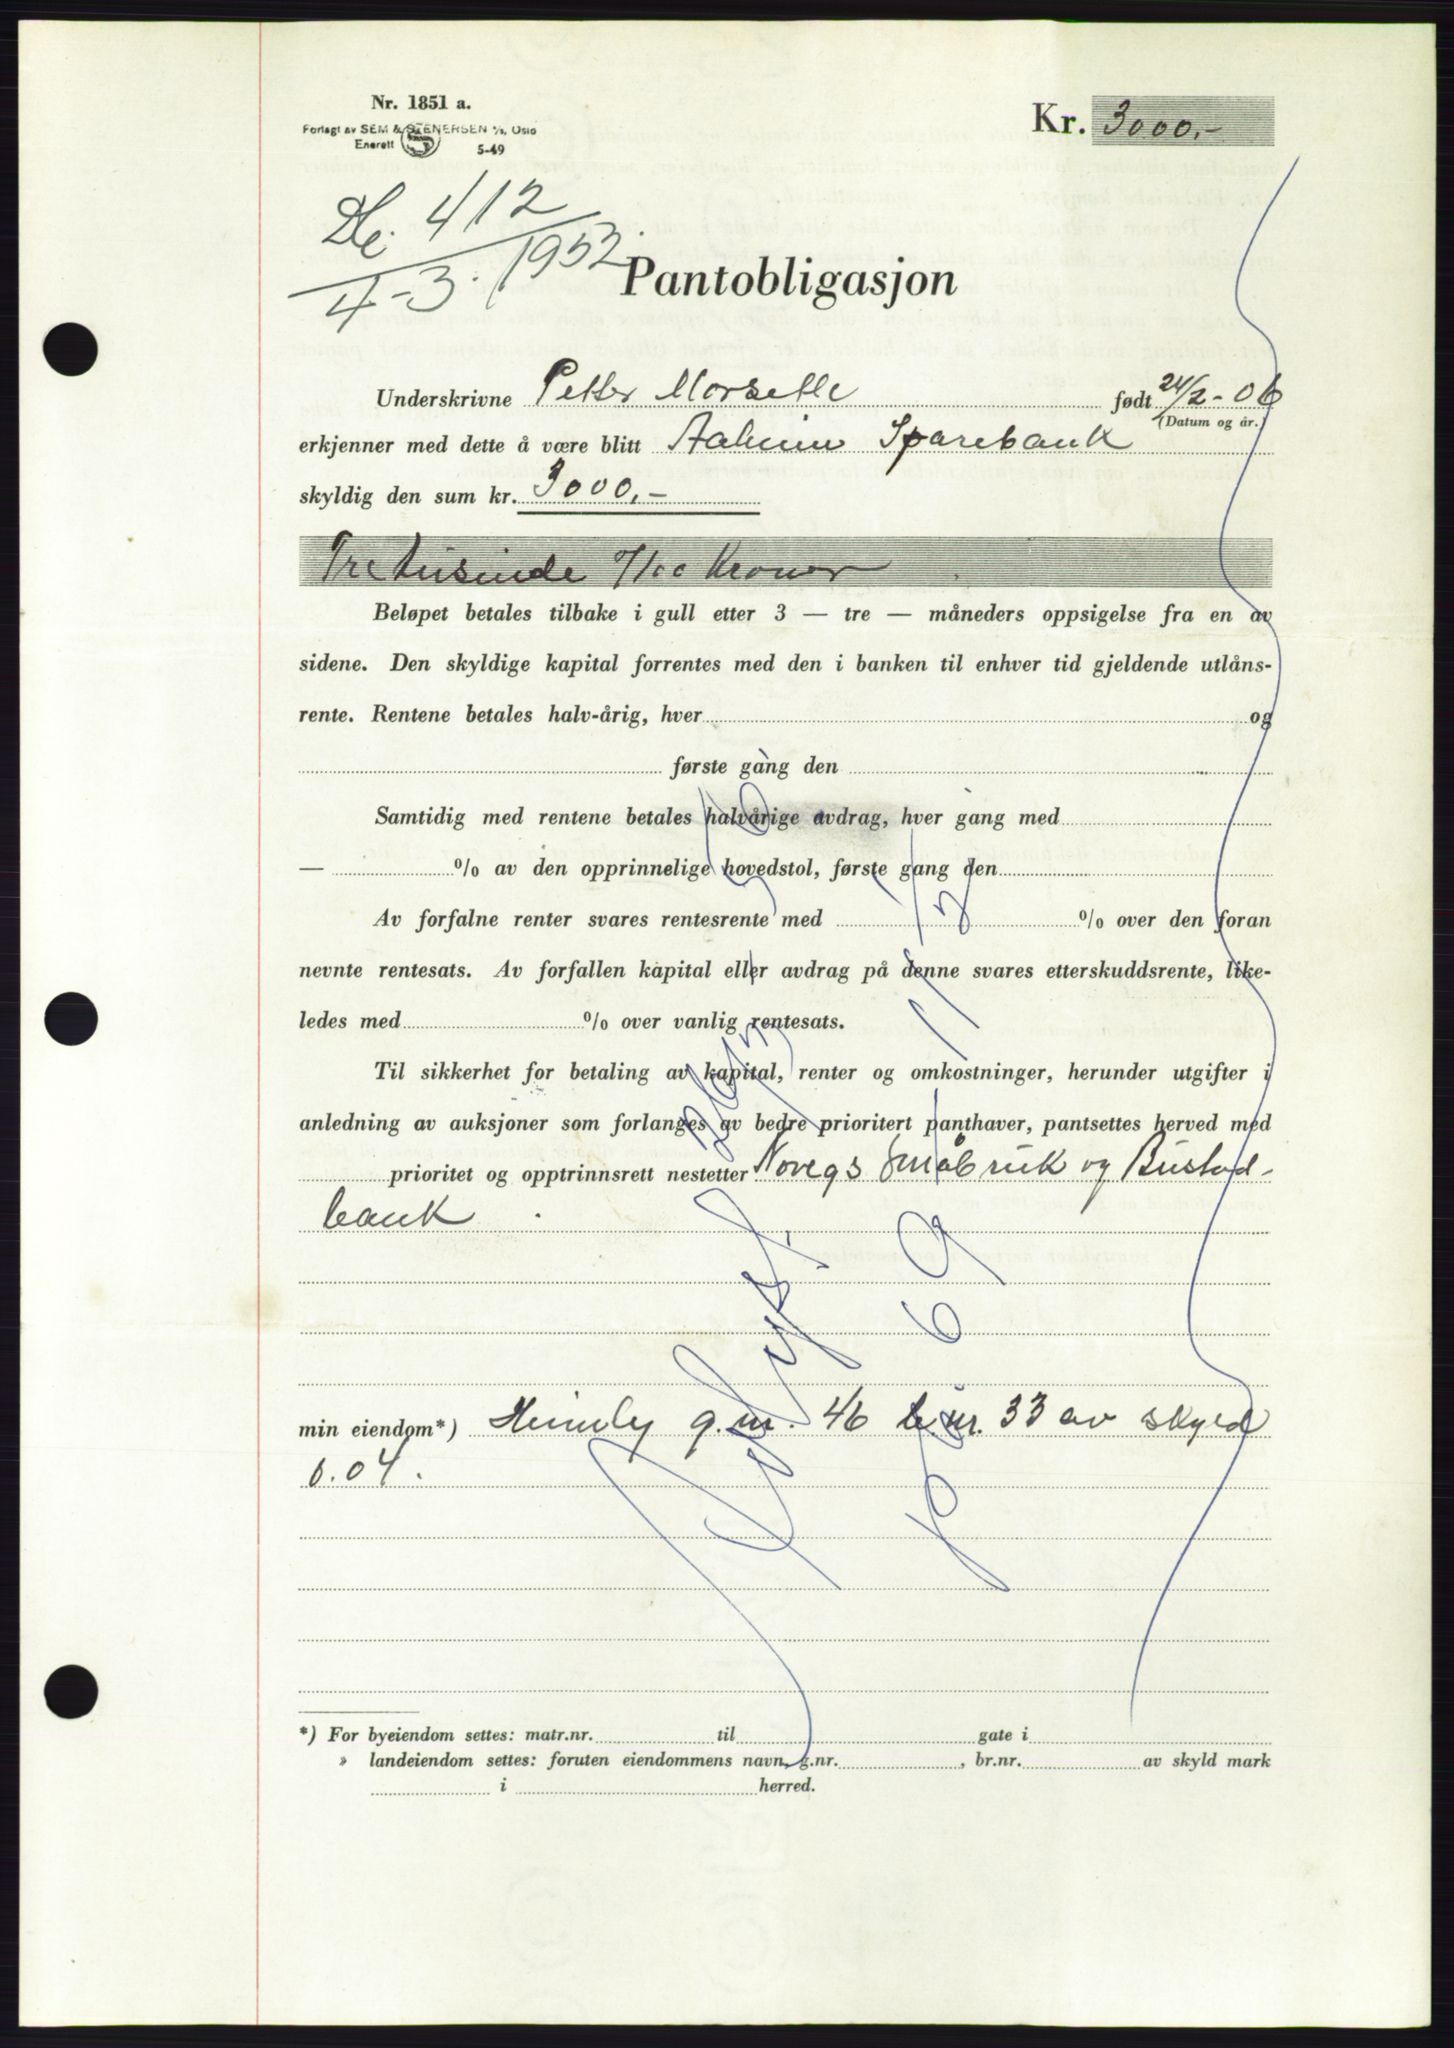 Nr. 1851 a.
Forlagt av SEM & STENERSEN A/S, Oslo
Enerett 5-49
Kr. 3000,-
412
4-3. 1953.
Pantobligasjon
Underskrivne Petter Morsetle født 24/2-06
(Datum og år.)
erkjenner med dette å være blitt Aaheim Sparebank
skyldig den sum kr. 3000,-
Tretusinde 0/00 Kroner
Beløpet betales tilbake i gull etter 3 — tre — måneders oppsigelse fra en av
sidene. Den skyldige kapital forrentes med den i banken til enhver tid gjeldende utlåns-
rente. Rentene betales halv-årig, hver og
første gang den
Samtidig med rentene betales halvårige avdrag, hver gang med
— % av den opprinnelige hovedstol, første gang den
Av forfalne renter svares rentesrente med % over den foran
nevnte rentesats. Av forfallen kapital eller avdrag på denne svares etterskuddsrente, like-
ledes med % over vanlig rentesats.
Til sikkerhet for betaling av kapital, renter og omkostninger, herunder utgifter i
anledning av auksjoner som forlanges av bedre prioritert panthaver, pantsettes herved med
prioritet og opptrinnsrett nestetter Noregs Småbruk og Bustad-
bank.
min eiendom*) Heimly g.nr. 46 b.nr. 33 av skyld
0.04.
Avlyst
*) For byeiendom settes: matr.nr. til gate i
» landeiendom settes: foruten eiendommens navn, g.nr. , br.nr. av skyld mark
i herred.